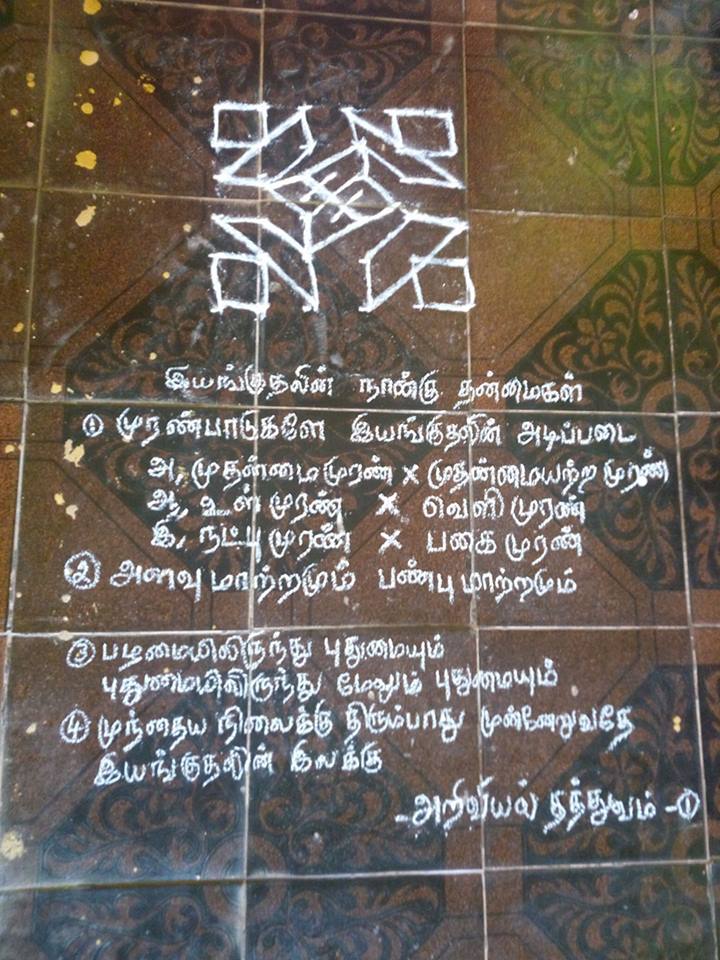 இயங்குதலின் நான்கு தன்மைகள்
① முரண்பாடுகளே இயங்குதலின் அடிப்படை
அ, முதன்மைமுரண் × முதன்மையற்ற முரண்
ஆ, உள் முரண் × வெளி முரண்
இ, நட்பு முரண் × பகை முரண்
② அளவு மாற்றமும் பண்பு மாற்றமும்
③ பழமையிலிருந்து புதுமையும்
புதுமையிலிருந்து மேலும் புதுமையும்
④ முந்தைய நிலைக்கு திரும்பாது முன்னேறுவதே
இயங்குதலின் இலக்கு
- அறிவியல் தத்துவம் - ①